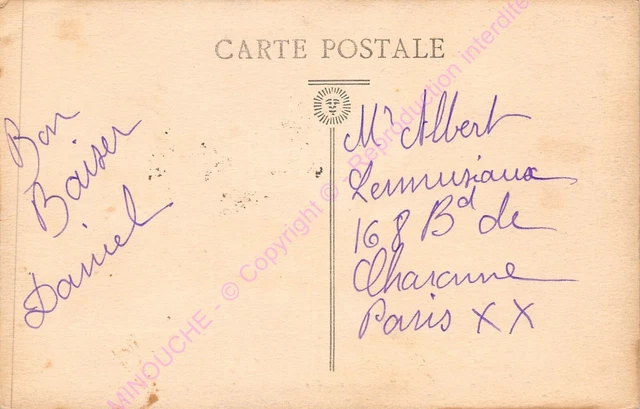 CARTE POSTALE
Bon
Baiser
Daniel
Mr Albert
Lemusiaux
168 Bd de
Charonne
Paris XX
MINOUCHE - © Copyright © - Reproduction interdite